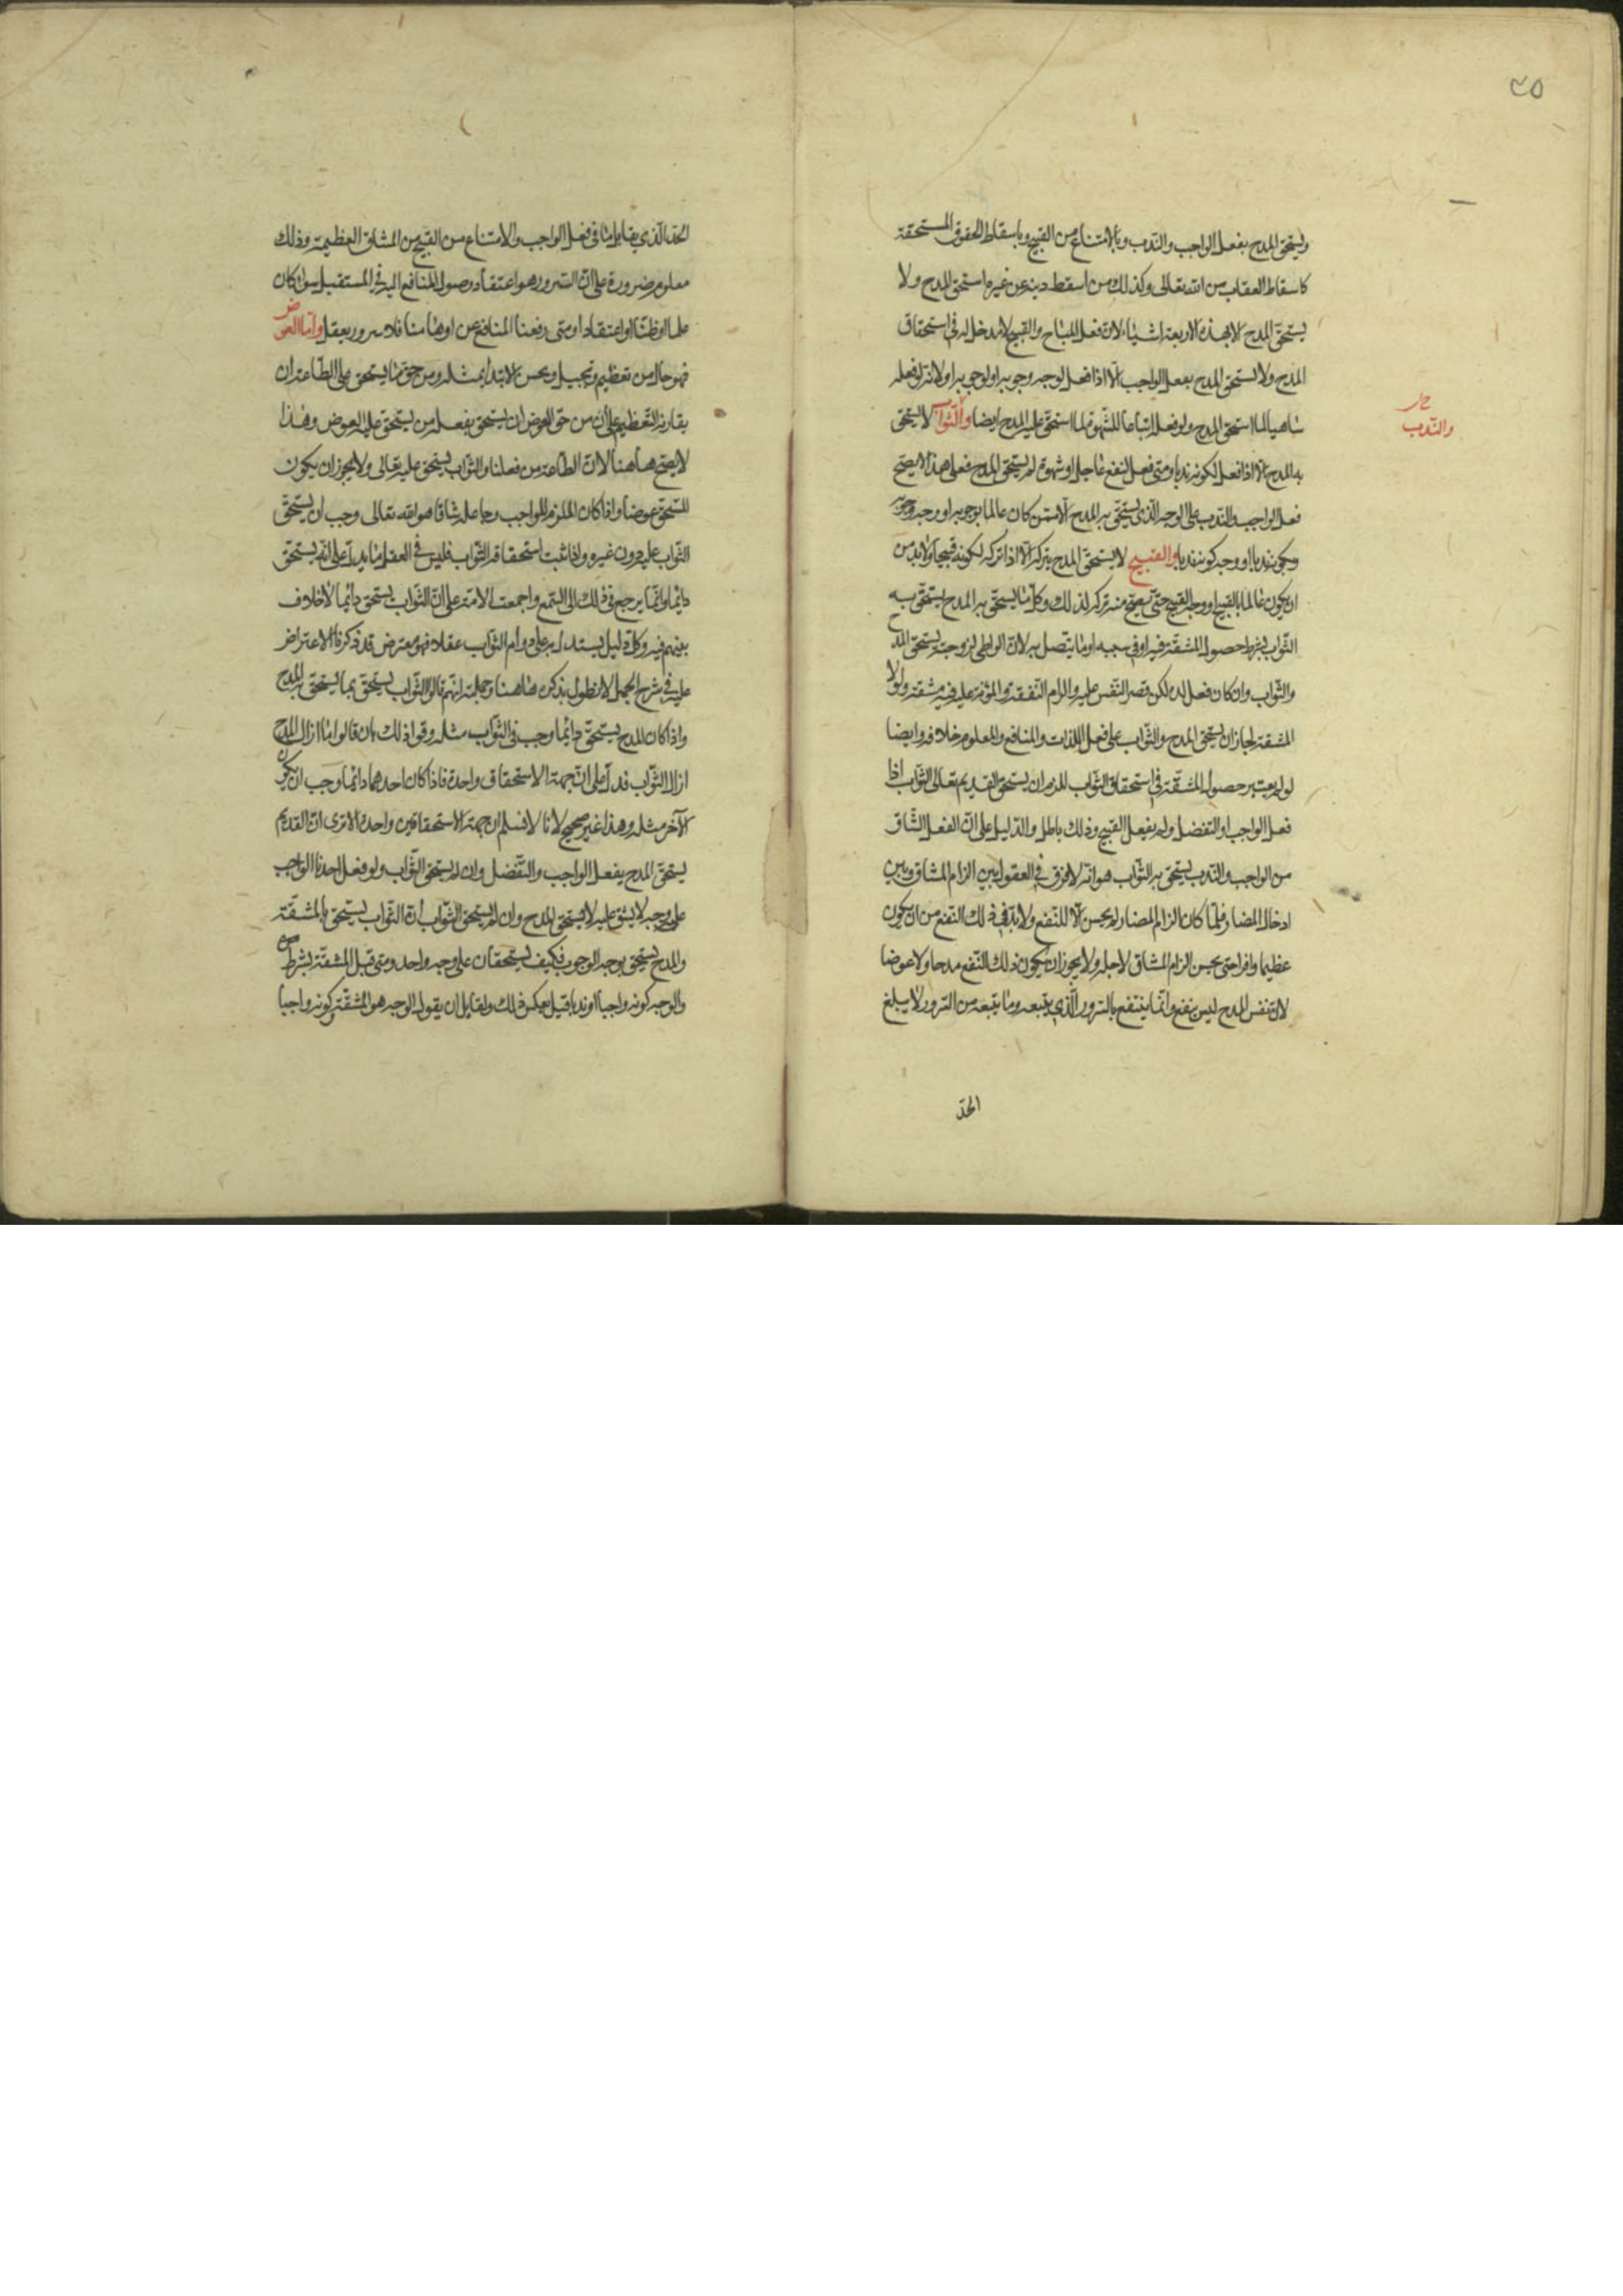 ٤٥
ويستحق المدح بفعل الواجب والندب وبالامتناع من القبيح وباسقاط الحقوق المستحقة
كاسقاط العقاب من الله تعالى وكذلك من اسقط دينه عن غيره استحق المدح ولا
يستحق المدح الا بهذه الاربعة اشياء لان فعل المباح والقبيح لا مدخل له في استحقاق
المدح ولا يستحق المدح بفعل الواجب الّا اذا فعل لوجه وجوبه او لوجوبه او لانه لو فعله
ساهيا لما استحق المدح ولو فعله اتباعا للشهوة لما استحق عليه المدح ايضا والثواب لا يستحق
والندب
به المدح الا اذا فعل لكونه ندبا ومتى فعل لنفع عاجل او شهوة لم يستحق المدح فعلى هذا لا يصح
فعل الواجب والندب على الوجه الذي يستحق به المدح الا ممن كان عالما بوجوبه او وجه وجوبه
وبكونه ندبا او وجه كونه ندبا والقبيح لا يستحق المدح بتركه الّا اذا تركه لكونه قبيحا ولا بد من
ان يكون عالما بالقبيح او وجه القبيح حتى يصح منه تركه لذلك وكل ما يستحق به المدح يستحق به
الثواب بشرط حصول المشقة فيه او في سببه او ما يتصل به لان الواطي لزوجته يستحق المدح
والثواب وان كان فعل لذه لكن قصر النفس عليه والزام النفقة والمؤنة عليه فيه مشقة ولولا
المشقة لجاز ان يستحق المدح والثواب على فعل اللذات والمنافع والمعلوم خلافه وايضا
لو لم يعتبر حصول المشقة في استحقاق الثواب للزم ان يستحق القديم تعالى الثواب اذا
فعل الواجب او التفضل ولم يفعل القبيح وذلك باطل والدليل على ان الفعل الشاق
من الواجب والندب يستحق به الثواب هو انه لا فرق في العقول بين الزام المشاق وبين
ادخال المضار فلما كان الزام المضار لم يحسن الّا للنفع ولا بد في ذلك النفع من ان يكون
عظيما وافرا حتى يحسن الزام المشاق لاجله ولا يجوز ان يكون ذلك النفع مدحا ولا عوضا
لان نفس المدح ليس بنفع وانما ينتفع بالسرور الذي يتبعه وما يتبعه من السرور لا يبلغ
الحدّ
الحد الذي يقابل ما في فعل الواجب والامتناع من القبيح من المشاق العظيمة وذلك
معلوم ضرورة على ان السرور هو اعتقاد وصول المنافع اليه في المستقبل سواء كان
علما او ظنا او اعتقادا ومتى رفعنا المنافع عن اوهامنا فلا سرور يعقل واما العوض
فهو خال من تعظيم وتبجيل ويحسن الابتداء بمثله ومن حق ما يستحق على الطاعة ان
يقارنه التعظيم على ان من حق العوض ان يستحق بفعل من يستحق عليه العوض وهذا
لا يصح هاهنا لان الطاعة من فعلنا والثواب يستحق عليه تعالى ولا يجوز ان يكون
المستحق عوضا واذا كان الملزم للواجب وجاعله شاقا هو الله تعالى وجب ان يستحق
الثواب عليه دون غيره واذا ثبت استحقاقه الثواب فليس في العقل ما يدل على انه يستحق
دائما وانما يرجع في ذلك الى السمع واجمعت الامة على ان الثواب يستحق دائما لا خلاف
بينهم فيه وكل دليل يستدل به على دوام الثواب عقلا فهو معترض قد ذكرنا الاعتراض
عليه في شرح الجمل لا نطول بذكره هاهنا وجملته انهم قالوا الثواب يستحق بما يستحق به المدح
واذا كان المدح يستحق دائما وجب في الثواب مثله وقووا ذلك بان قالوا ما ازال المدح
ازال الثواب فدل على ان جهة الاستحقاق واحدة فاذا كان احدهما دائما وجب ان يكون
الآخر مثله وهذا غير صحيح لانا لا نسلم ان جهة الاستحقاقين واحدة الا ترى ان القديم
يستحق المدح بفعل الواجب والتفضل وان لم يستحق الثواب ولو فعل احدنا الواجب
على وجه لا يشق عليه لاستحق المدح وان لم يستحق الثواب لان الثواب يستحق بالمشقة
والمدح يستحق بوجه الوجوب فكيف يستحقان على وجه واحد ومتى قيل المشقة شرط
والوجه كونه واجبا او ندبا قيل بعكس ذلك ولقايل ان يقول الوجه هو المشقة وكونه واجبا